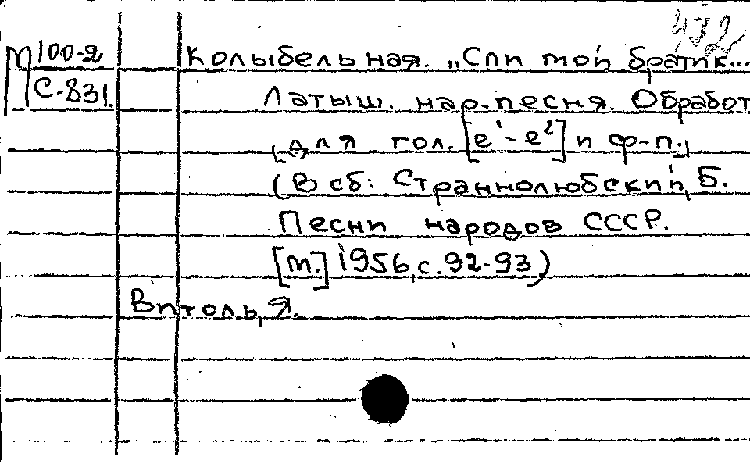 432
М 100-2 Колыбельная. „Спи мой братик...
С-831 Латыш. нар. песня. Обработ
(для гол. [e¹-e²] и ф-п.)
(В сб: Страннолюбский, Б.
Песни народов СССР.
[М.] 1956, с. 92-93)
Витоль, Я.